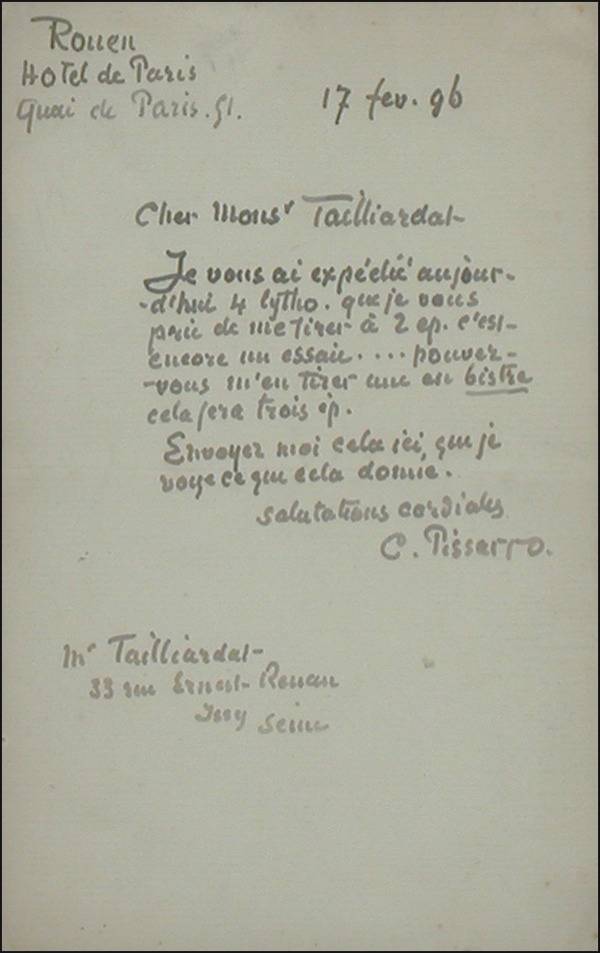 Rouen
Hotel de Paris
Quai de Paris. 51.
17 fev. 96
Cher Monsr Tailliardat
Je vous ai expédié aujour-
-d'hui 4 lytho. que je vous
prie de me tirer à 2 ep. c'est
encore un essaie. ... pouvez-
-vous m'en tirer une en bistre
cela fera trois ép.
Envoyez moi cela ici, que je
voye ce que cela donne.
salutations cordiales
C. Pissarro.
Mr Tailliardat
33 rue Ernest Renan
Issy Seine